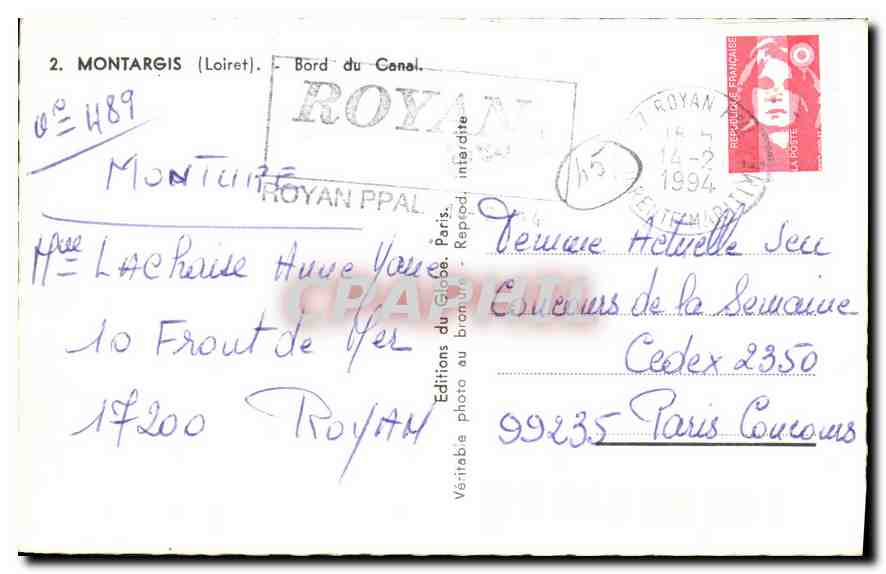 2. MONTARGIS (Loiret). - Bord du Canal.
n° 489
MONTURE
Mme LAChaise Anne Marie
10 Front de Mer
17200 ROYAN
ROYAN
ROYAN PPAL
Editions du Globe. Paris.
Véritable photo au bromure - Reprod. interdite
45
17 ROYAN P
14-2
1994
RENTE MARITIME
REPUBLIQUE FRANÇAISE
LA POSTE
Femme Actuelle Jeu
Concours de la Semaine
Cedex 2350
99235 Paris Concours
CPAPHIL